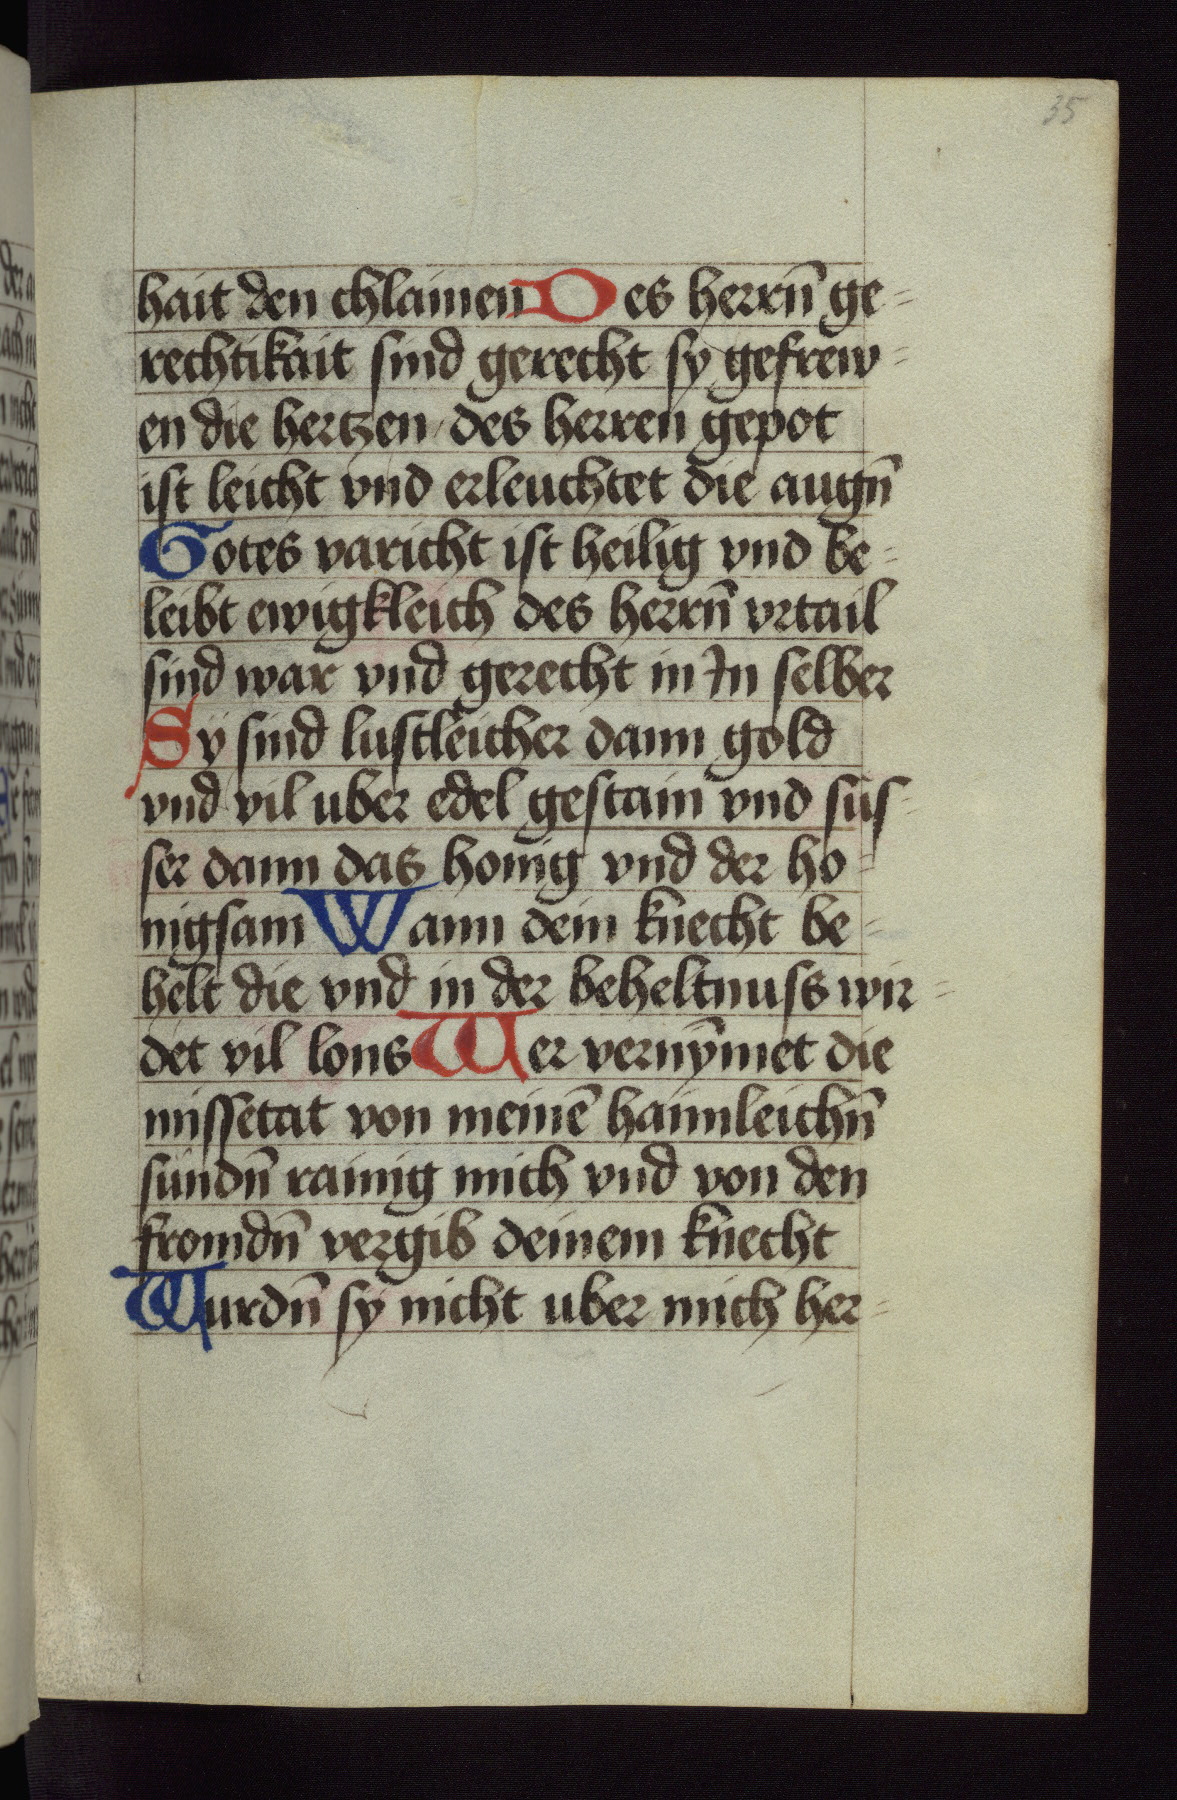 35
hait den chlainen Des herrn̄ ge-
rechtikait sind gerecht sy gefrew-
en die hertzen des herren gepot
ist leicht vnd erleuchtet die augn̄
Gotes varicht ist heilig vnd be-
leibt ewigkleich des herrn̄ vrtail
sind war vnd gerecht in In selber
Sÿ sind lustleicher dann gold
vnd vil uber edel gestain vnd sus-
ser dann das honig vnd der ho-
nigsam Wann dein knecht be-
helt die vnd in der beheltnuss wir-
det vil lons Wer vernȳmet die
missetat von meinē haimleichn̄
sündn̄ rainig mich vnd von den
fromdn̄ vergib deinem knecht
Wurdn̄ sÿ nicht uber mich her-